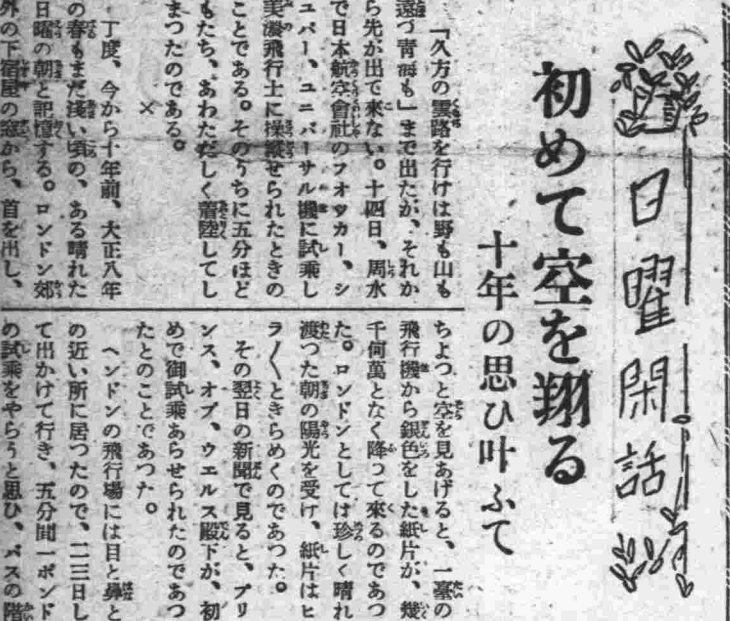 日曜閑話
初めて空を翔る
十年の思ひ叶ふて
「久方の雲路を行けは野も山も
遠つ青海も」まで出たが、それか
ら先が出て來ない。十四日、周水
で日本航空會社のフオツカー、シ
ユパー、ユニバーサル機に試乘し
美濃飛行士に操縱せられたときの
ことである。そのうちに五分ほど
もたち、あわたゞしく着陸してし
まつたのである。
×
丁度、今から十年前、大正八年
の春もまだ淺い頃の、ある晴れた
日曜の朝と記憶する。ロンドン郊
外の下宿屋の窓から、首を出し、
ちよつと空を見あげると、一臺の
飛行機から銀色をした紙片が、幾
千何萬となく降つて來るのであつ
た。ロンドンとしては珍しく晴れ
渡つた朝の陽光を受け、紙片はヒ
ラ〱ときらめくのであつた。
その翌日の新聞で見ると、プリ
ンス、オブ、ウエルス殿下が、初
めて御試乘あらせられたのであつ
たとのことであつた。
ヘンドンの飛行場には目と鼻と
の近い所に居つたので、二三日し
て出かけて行き、五分間一ポンド
の試乘をやらうと思ひ、バスの階